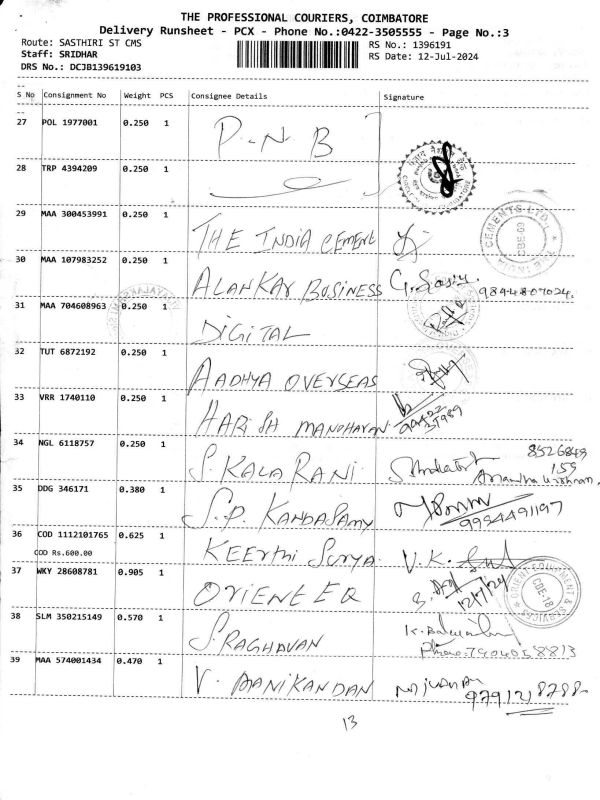 THE PROFESSIONAL COURIERS, COIMBATORE
Delivery Runsheet - PCX - Phone No.:0422-3505555 - Page No.:3
Route: SASTHIRI ST CMS
RS No.: 1396191
Staff: SRIDHAR
RS Date: 12-Jul-2024
DRS No.: DCJB139619103
S No Consignment No Weight PCS Consignee Details Signature
27 POL 1977001 0.250 1 P.N B
28 TRP 4394209 0.250 1
29 MAA 300453991 0.250 1 THE INDIA CEMENT
CEMENTS LTD. CBE-09
30 MAA 107983252 0.250 1 ALANKAR BUSINESS
9844807024.
31 MAA 704608963 0.250 1 DIGITAL
32 TUT 6872192 0.250 1 AADHYA OVERSEAS
33 VRR 1740110 0.250 1 HARISH MANOHARAN
34 NGL 6118757 0.250 1 S. KALA RANI
8526849
159
35 DDG 346171 0.380 1 S.P. KANDASAMY
9994491197
36 COD 1112101765 0.625 1 KEERTHI SURYA V.K.
COD Rs.600.00
37 WKY 28608781 0.905 1 ORIENT EQ
12/7/24
ORIENT EQUIPMENT & SERVICES CBE-18
38 SLM 350215149 0.570 1 S. RAGHAVAN
Phone: 7904058813
39 MAA 574001434 0.470 1 V. MANIKANDAN
9791218788
13